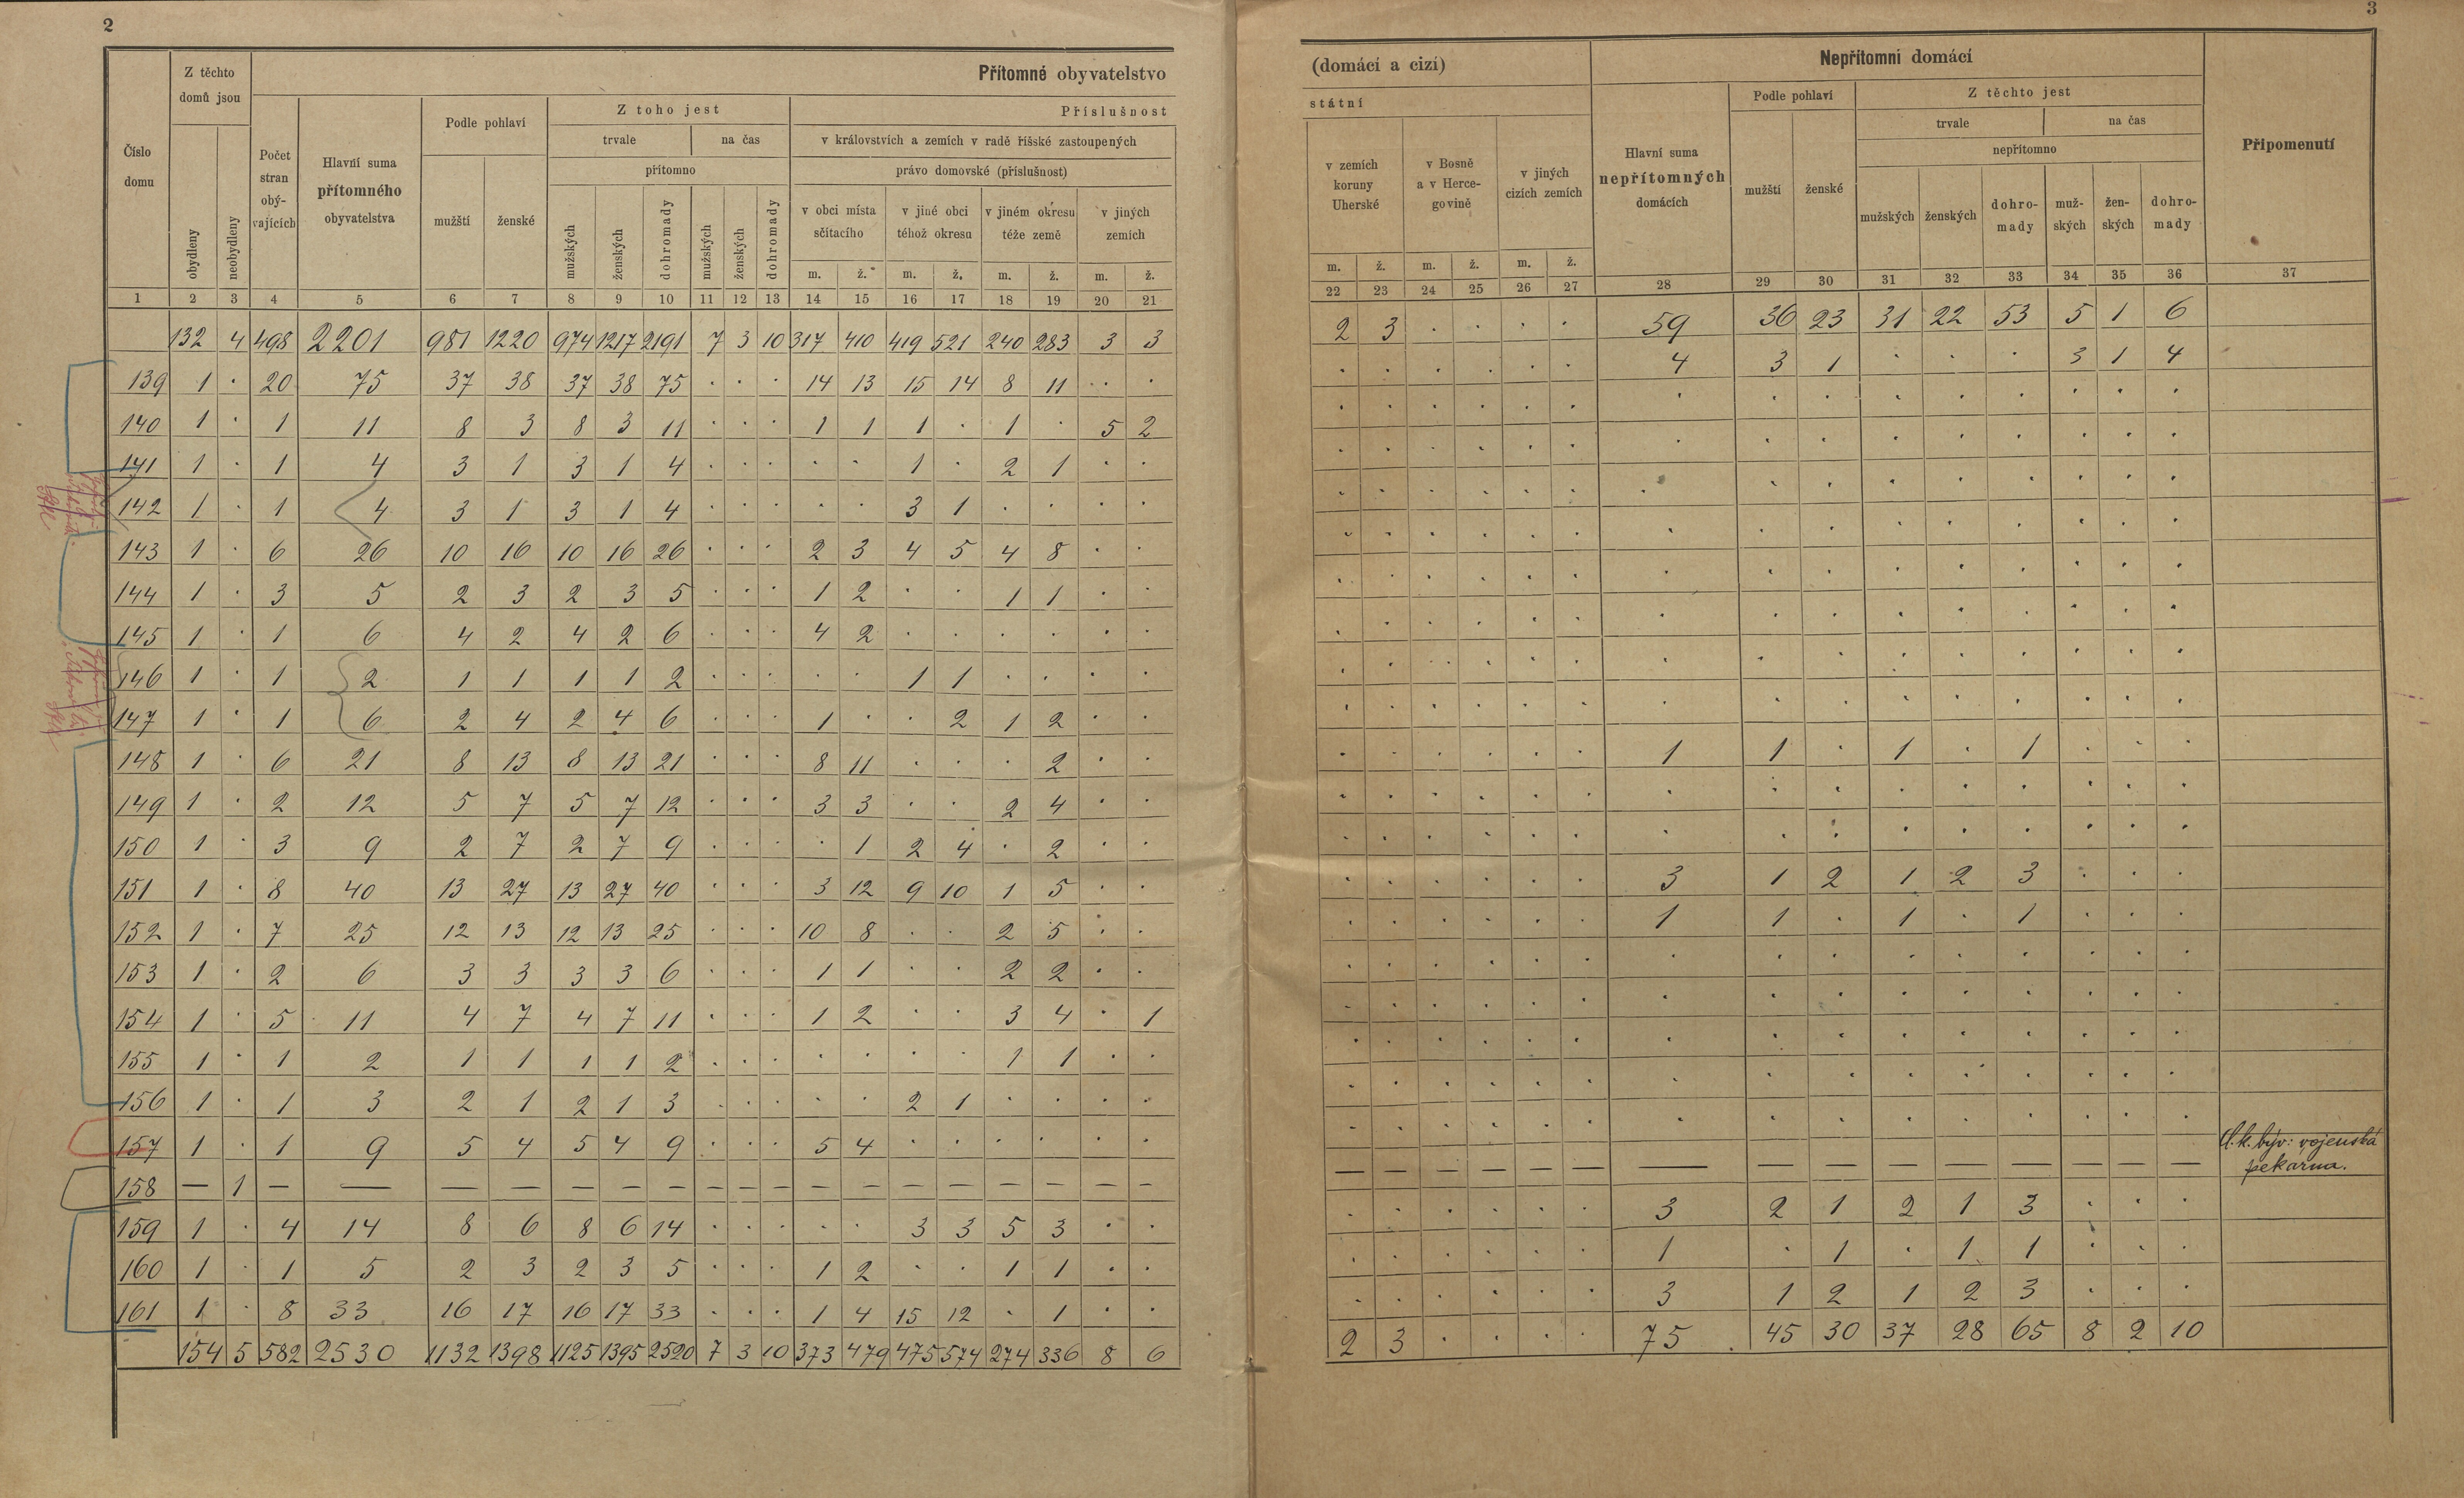 2
Z těchto
domů jsou
Přítomné obyvatelstvo
Číslo
domu
obydleny
neobydleny
Počet
stran
obý-
vajících
Hlavní suma
přítomného
obyvatelstva
Podle pohlaví
mužští
ženské
Z toho jest
trvale
na čas
přítomno
mužských
ženských
dohromady
mužských
ženských
dohromady
Příslušnost
v královstvích a zemích v radě říšské zastoupených
právo domovské (příslušnost)
v obci místa
sčítacího
v jiné obci
téhož okresu
v jiném okresu
téže země
v jiných
zemích
m. ž. m. ž. m. ž. m. ž.
1 2 3 4 5 6 7 8 9 10 11 12 13 14 15 16 17 18 19 20 21
132 4 498 2201 981 1220 974 1217 2191 7 3 10 317 410 419 521 240 283 3 3
139 1 . 20 75 37 38 37 38 75 . . . 14 13 15 14 8 11 . .
140 1 . 1 11 8 3 8 3 11 . . . 1 1 1 . 1 . 5 2
141 1 . 1 4 3 1 3 1 4 . . . . . 1 . 2 1 . .
142 1 . 1 4 3 1 3 1 4 . . . . . 3 1 . . . .
143 1 . 6 26 10 16 10 16 26 . . . 2 3 4 5 4 8 . .
144 1 . 3 5 2 3 2 3 5 . . . 1 2 . . 1 1 . .
145 1 . 1 6 4 2 4 2 6 . . . 4 2 . . . . . .
146 1 . 1 2 1 1 1 1 2 . . . . . 1 1 . . . .
147 1 . 1 6 2 4 2 4 6 . . . 1 . . 2 1 2 . .
148 1 . 6 21 8 13 8 13 21 . . . 8 11 . . . 2 . .
149 1 . 2 12 5 7 5 7 12 . . . 3 3 . . 2 4 . .
150 1 . 3 9 2 7 2 7 9 . . . . 1 2 4 . 2 . .
151 1 . 8 40 13 27 13 27 40 . . . 3 12 9 10 1 5 . .
152 1 . 7 25 12 13 12 13 25 . . . 10 8 . . 2 5 . .
153 1 . 2 6 3 3 3 3 6 . . . 1 1 . . 2 2 . .
154 1 . 5 11 4 7 4 7 11 . . . 1 2 . . 3 4 . 1
155 1 . 1 2 1 1 1 1 2 . . . . . . . 1 1 . .
156 1 . 1 3 2 1 2 1 3 . . . . . 2 1 . . . .
157 1 . 1 9 5 4 5 4 9 . . . 5 4 . . . . . .
158 — 1 — — — — — — — — — — — — — — — — — —
159 1 . 4 14 8 6 8 6 14 . . . . . 3 3 5 3 . .
160 1 . 1 5 2 3 2 3 5 . . . 1 2 . . 1 1 . .
161 1 . 8 33 16 17 16 17 33 . . . 1 4 15 12 . 1 . .
154 5 582 2530 1132 1398 1125 1395 2520 7 3 10 373 479 475 574 274 336 8 6
3
(domácí a cizí)
státní
v zemích
koruny
Uherské
v Bosně
a v Herce-
govině
v jiných
cizích zemích
Nepřítomni domácí
Hlavní suma
nepřítomných
domácích
Podle pohlaví
mužští
ženské
Z těchto jest
trvale
na čas
nepřítomno
mužských
ženských
dohro-
mady
muž-
ských
žen-
ských
dohro-
mady
Připomenutí
m. ž. m. ž. m. ž.
22 23 24 25 26 27 28 29 30 31 32 33 34 35 36 37
2 3 . . . . 59 36 23 31 22 53 5 1 6
. . . . . . 4 3 1 . . . 3 1 4
. . . . . . . . . . . . . . .
. . . . . . . . . . . . . . .
. . . . . . . . . . . . . . .
. . . . . . . . . . . . . . .
. . . . . . . . . . . . . . .
. . . . . . . . . . . . . . .
. . . . . . . . . . . . . . .
. . . . . . . . . . . . . . .
. . . . . . 1 1 . 1 . 1 . . .
. . . . . . . . . . . . . . .
. . . . . . . . . . . . . . .
. . . . . . 3 1 2 1 2 3 . . .
. . . . . . 1 1 . 1 . 1 . . .
. . . . . . . . . . . . . . .
. . . . . . . . . . . . . . .
. . . . . . . . . . . . . . .
. . . . . . . . . . . . . . .
. . . . . . . . . . . . . . .
— — — — — — — — — — — — — — — býv: vojenská
pekárna.
. . . . . . 3 2 1 2 1 3 . . .
. . . . . . 1 . 1 . 1 1 . . .
. . . . . . 3 1 2 1 2 3 . . .
2 3 . . . . 75 45 30 37 28 65 8 2 10